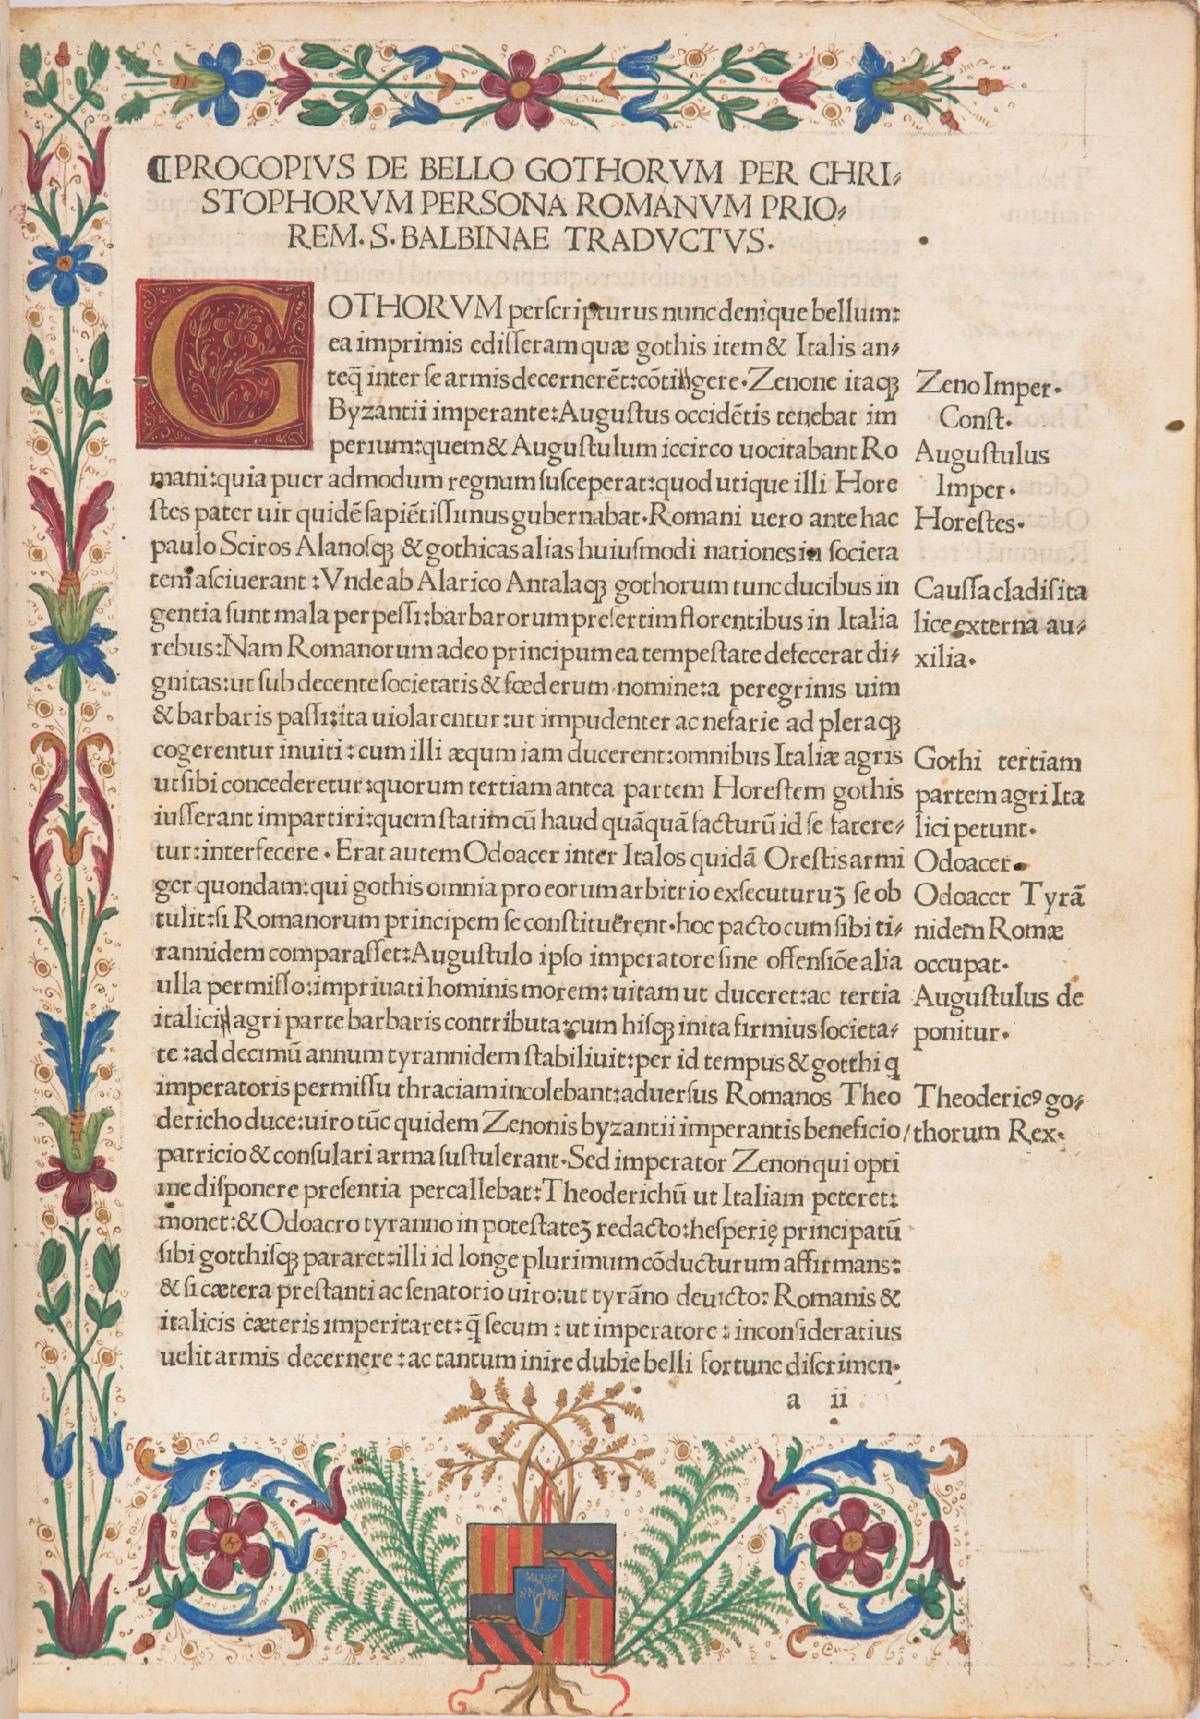 ¶PROCOPIVS DE BELLO GOTHORVM PER CHRI⸗
STOPHORVM PERSONA ROMANVM PRIO⸗
REM. S. BALBINAE TRADVCTVS.
GOTHORVM perſcripturus nunc denique bellum:
ea imprimis ediſſeram quæ gothis item & Italis an⸗
teq̃ inter ſe armis decernerẽt: cõtigere. Zenone itaqꝫ
Byzantii imperante: Auguſtus occidẽtis tenebat im
perium: quem & Auguſtulum iccirco uocitabant Ro
mani: quia puer admodum regnum ſuſceperat: quod utique illi Hore
ſtes pater uir quidẽ ſapiẽtiſſimus gubernabat. Romani uero ante hac
paulo Sciros Alanoſqꝫ & gothicas alias huiuſmodi nationes in ſocieta
tem aſciuerant: Vnde ab Alarico Antalaqꝫ gothorum tunc ducibus in
gentia ſunt mala perpeſſi: barbarorum preſertim florentibus in Italia
rebus: Nam Romanorum adeo principum ea tempeſtate defecerat di⸗
gnitas: ut ſub decente ſocietatis & fœderum nomine: a peregrinis uim
& barbaris paſſi: ita uiolarentur: ut impudenter ac nefarie ad pleraqꝫ
cogerentur inuiti: cum illi æqum iam ducerent: omnibus Italiæ agris
ut ſibi concederetur: quorum tertiam antea partem Horeſtem gothis
iuſſerant impartiri: quem ſtatim cũ haud quãquã facturũ id ſe fatere⸗
tur: interfecere. Erat autem Odoacer inter Italos quidã Oreſtis armi
ger quondam: qui gothis omnia pro eorum arbitrio exſecuturuꝫ ſe ob
tulit: ſi Romanorum principem ſe conſtituerent. hoc pacto cum ſibi ti⸗
rannidem comparaſſet: Auguſtulo ipſo imperatore ſine offenſiõe alia
ulla permiſſo: im priuati hominis morem: uitam ut duceret: ac tertia
italici agri parte barbaris contributa: cum hiſqꝫ inita firmius ſocieta⸗
te: ad decimũ annum tyrannidem ſtabiliuit: per id tempus & gotthi q
imperatoris permiſſu thraciam incolebant: aduerſus Romanos Theo
dericho duce: uiro tũc quidem Zenonis byzantii imperantis beneficio/
patricio & conſulari arma ſuſtulerant. Sed imperator Zenon qui opti
me diſponere preſentia percallebat: Theoderichũ ut Italiam peteret:
monet: & Odoacro tyranno in poteſtateꝫ redacto: heſperię principatũ
ſibi gotthiſqꝫ pararet: illi id longe plurimum cõducturum affirmans:
& ſi cætera preſtanti ac ſenatorio uiro: ut tyrãno deuicto: Romanis &
italicis cæteris imperitaret: q̃ ſecum: ut imperatore: inconſideratius
uelit armis decernere: ac tantum inire dubie belli fortune diſcrimen.
a ii
Zeno Imper.
Conſt.
Auguſtulus
Imper.
Horeſtes.
Cauſſa cladiſ ita
lice externa au⸗
xilia.
Gothi tertiam
partem agri Ita
lici petunt.
Odoacer.
Odoacer Tyrã
nidem Romæ
occupat.
Auguſtulus de
ponitur.
Theodericꝰ go⸗
thorum Rex.